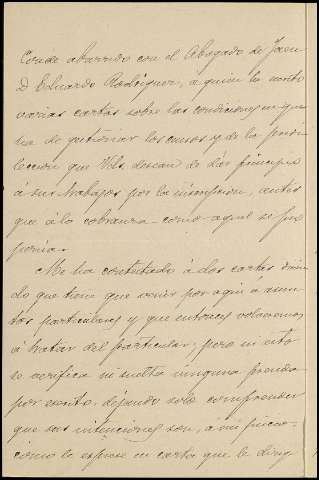 Conde aburrido con el Abogado de Jaen
D. Eduardo Rodriguez, a quien he escrito
varias cartas sobre las condiciones en que
ha de gestionar los censos y de la predi
leccion que Vds. desean de dar principio
á sus trabajos por la inscripcion, antes
que á la cobranza como aquel se pro
ponia.
Me ha contestado á dos cartas dicien
do que tiene que venir por aqui á asun
tos particulares y que entonces volveremos
á tratar del particular; pero ni esto
se verifica ni suelta ninguna prenda
por escrito, dejando solo comprender
que sus intenciones son, á mi juicio
como lo expresé en carta que le dirigi